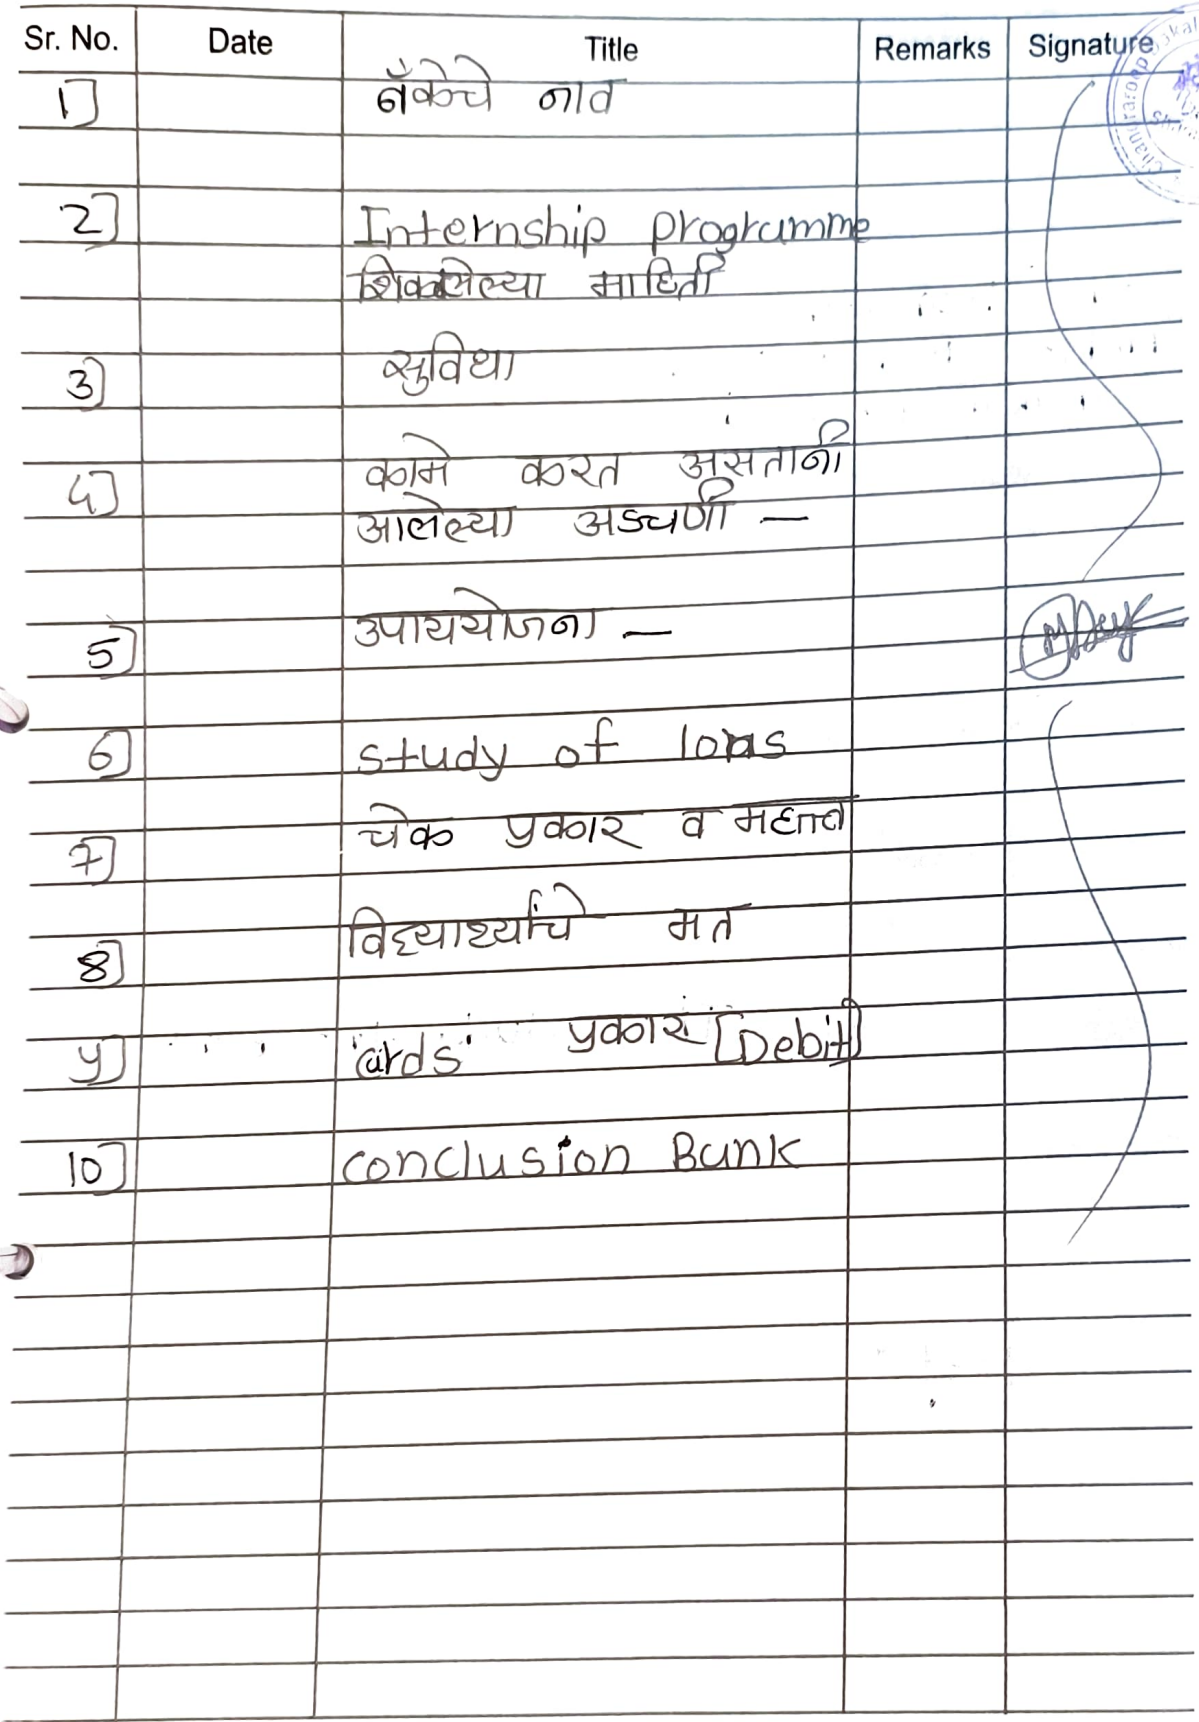 Sr. No. Date Title Remarks Signature
1] बँकेचे नाव
2] Internship programme
शिकलेल्या माहिती
3] सुविधा
4] कामे करत असतानी
आलेल्या अडचणी —
5] उपाययोजना —
6] study of lons
7] चेक प्रकार व महत्व
8] विद्यार्थ्यांचे मत
9] cards प्रकार [Debit]
10] conclusion Bank